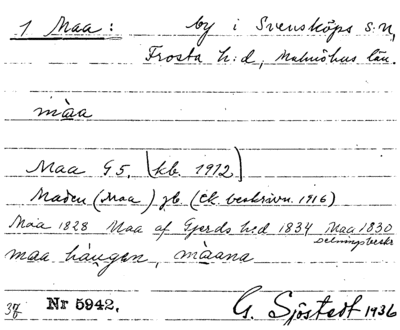 1 Maa: by i Svensköps s:n,
Frosta h:d, Malmöhus län.
màa
Maa G5. (kb. 1912)
Maden (Maa) jb. (ek. beskrivn. 1916)
Maa 1828 Maa af Gjerds h:d 1834 Maa 1830
delningsbeskr
maa hängen, màana
37 Nr 5942. G. Sjöstedt 1936